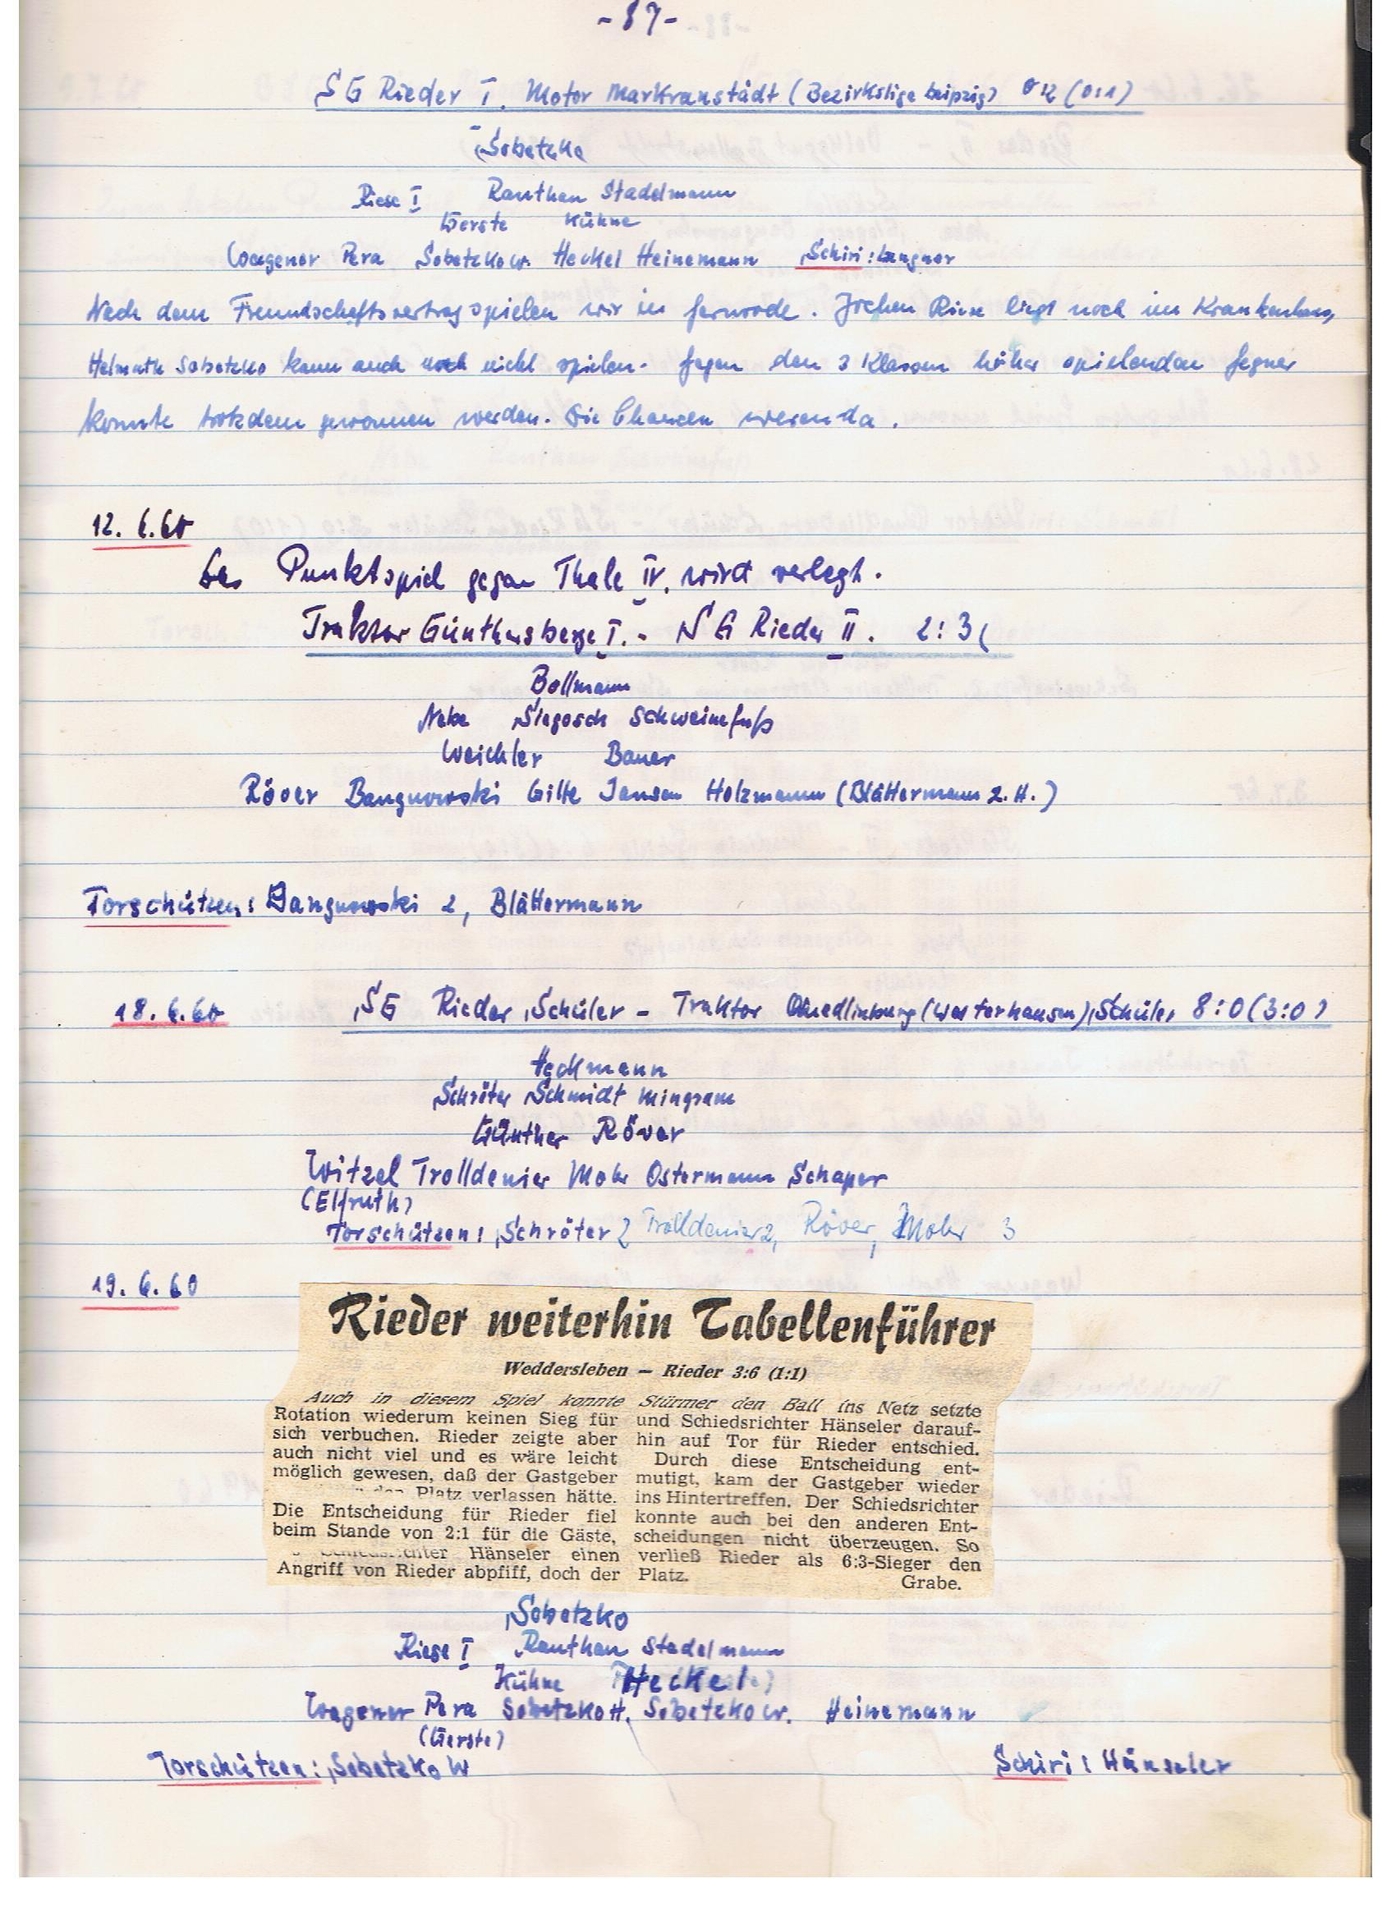 -87-
SG Rieder I. Motor Markranstädt (Bezirksliga Leipzig) 0:2 (0:1)
Sobetzko
Riese I Rauthan Stadelmann
Gerste Kühne
Wagener Pera Sobetzko W. Heckel Heinemann Schiri: Langner
Nach dem Freundschaftsvertrag spielen wir in Gernrode. Jochen Riese liegt noch im Krankenhaus,
Helmuth Sobetzko kann auch noch nicht spielen. Gegen den 3 Klassen höher spielenden Gegner
konnte trotzdem gewonnen werden. Die Chancen waren da.
12.6.60
Das Punktspiel gegen Thale IV. wird verlegt.
Traktor Günthersberge I. - SG Rieder II. 2:3(
Bollmann
Nebe Siegosch Schweinefuß
Weichler Bauer
Röver Bangnowski Gille Jansen Holzmann (Blättermann 2.H.)
Torschützen: Bangnowski 2, Blättermann
18.6.60 SG Rieder Schüler - Traktor Quedlinburg (Westerhausen) Schüler 8:0 (3:0)
Heckmann
Schröter Schmidt Mingram
Günther Röver
Witzel Trolldenier Mohr Ostermann Schaper
(Elfruth)
Torschützen: Schröter 2 Trolldenier 2, Röver, Mohr 3
19.6.60
Rieder weiterhin Tabellenführer
Weddersleben — Rieder 3:6 (1:1)
Auch in diesem Spiel konnte
Rotation wiederum keinen Sieg für
sich verbuchen. Rieder zeigte aber
auch nicht viel und es wäre leicht
möglich gewesen, daß der Gastgeber
den Platz verlassen hätte.
Die Entscheidung für Rieder fiel
beim Stande von 2:1 für die Gäste,
Schiedsrichter Hänseler einen
Angriff von Rieder abpfiff, doch der
Stürmer den Ball ins Netz setzte
und Schiedsrichter Hänseler darauf-
hin auf Tor für Rieder entschied.
Durch diese Entscheidung ent-
mutigt, kam der Gastgeber wieder
ins Hintertreffen. Der Schiedsrichter
konnte auch bei den anderen Ent-
scheidungen nicht überzeugen. So
verließ Rieder als 6:3-Sieger den
Platz. Grabe.
Sobetzko
Riese I Rauthan Stadelmann
Kühne Heckel
Wagener Pera Sobetzko H. Sobetzko W. Heinemann
(Gerste)
Torschützen: Sobetzko W Schiri: Hänseler